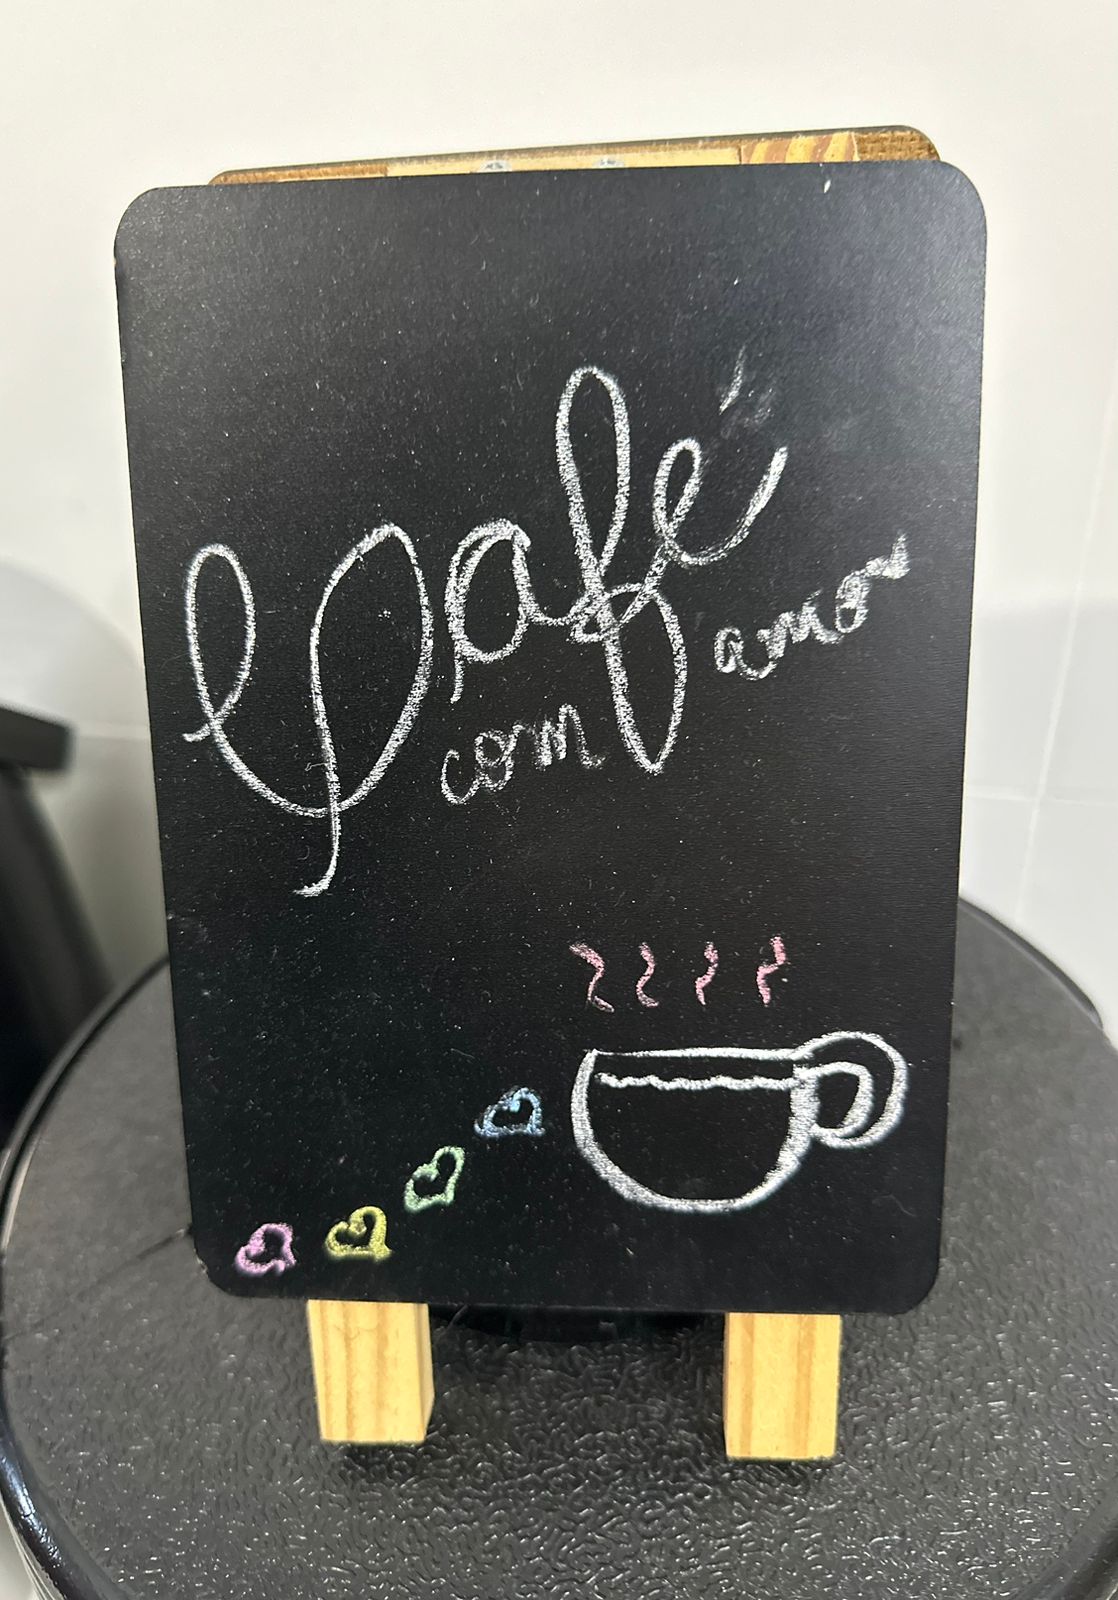 Café
com amor